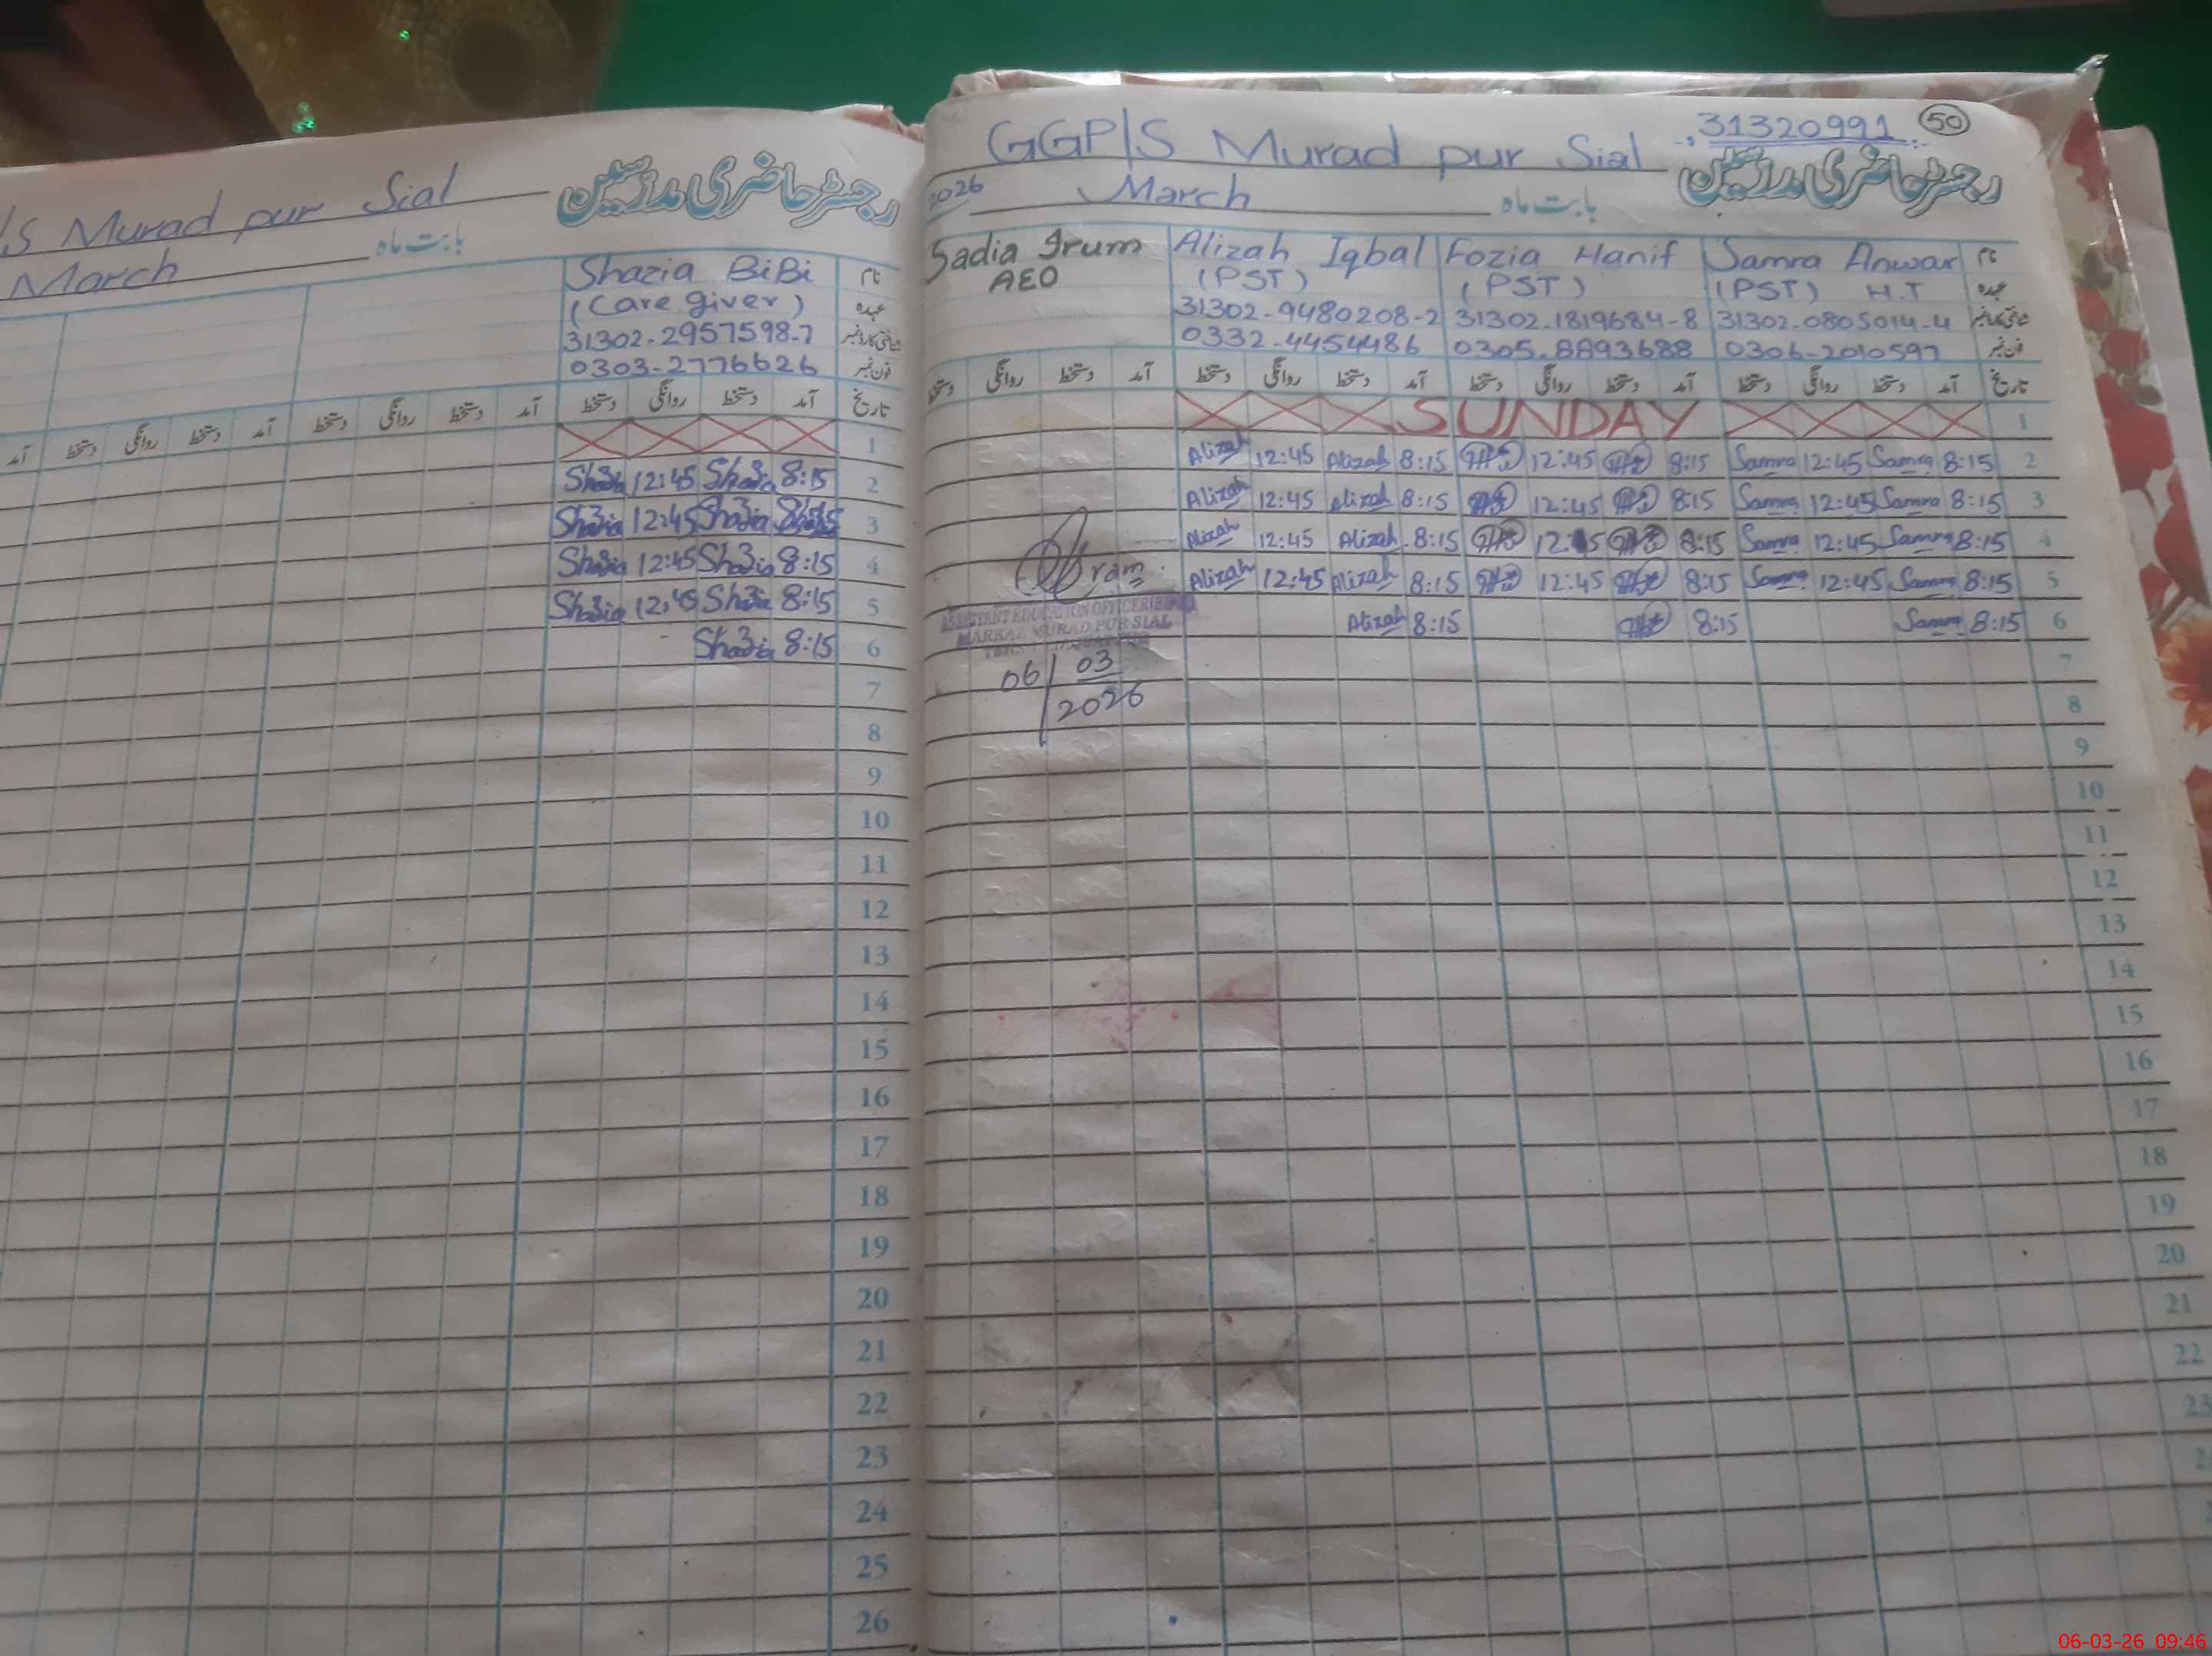 /S Murad pur Sial
رجسٹر حاضری مدرسین
March بابت ماہ
Shazia BiBi نام
(Care giver) عہدہ
31302-2957598-7 شناختی کارڈ نمبر
0303-2776626 فون نمبر
آمد دستخط روانگی دستخط آمد دستخط روانگی دستخط آمد دستخط روانگی دستخط آمد تاریخ
1
Shazia 12:45 Shazia 8:15 2
Shazia 12:45 Shazia 3
Shazia 12:45 Shazia 8:15 4
Shazia 12:45 Shazia 8:15 5
Shazia 8:15 6
7
8
9
10
11
12
13
14
15
16
17
18
19
20
21
22
23
24
25
26
GGP/S Murad pur Sial 31320991 50
رجسٹر حاضری مدرسین
2026 March بابت ماہ
Sadia Irum Alizah Iqbal Fozia Hanif Samra Anwar نام
AEO (PST) (PST) (PST) H.T عہدہ
31302-9480208-2 31302-1819684-8 31302-0805014-4 شناختی کارڈ نمبر
0332-4454486 0305-8893688 0306-2010597 فون نمبر
دستخط روانگی دستخط آمد دستخط روانگی دستخط آمد دستخط روانگی دستخط آمد دستخط روانگی دستخط آمد تاریخ
SUNDAY 1
Alizah 12:45 Alizah 8:15 12:45 8:15 Samra 12:45 Samra 8:15 2
Alizah 12:45 Alizah 8:15 12:45 8:15 Samra 12:45 Samra 8:15 3
Alizah 12:45 Alizah 8:15 12:45 8:15 Samra 12:45 Samra 8:15 4
Alizah 12:45 Alizah 8:15 12:45 8:15 Samra 12:45 Samra 8:15 5
ASSISTANT EDUCATION OFFICER
MARKAZ MURAD PUR SIAL
Alizah 8:15 8:15 Samra 8:15 6
06/03
2026
7
8
9
10
11
12
13
14
15
16
17
18
19
20
21
22
23
06-03-26 09:46